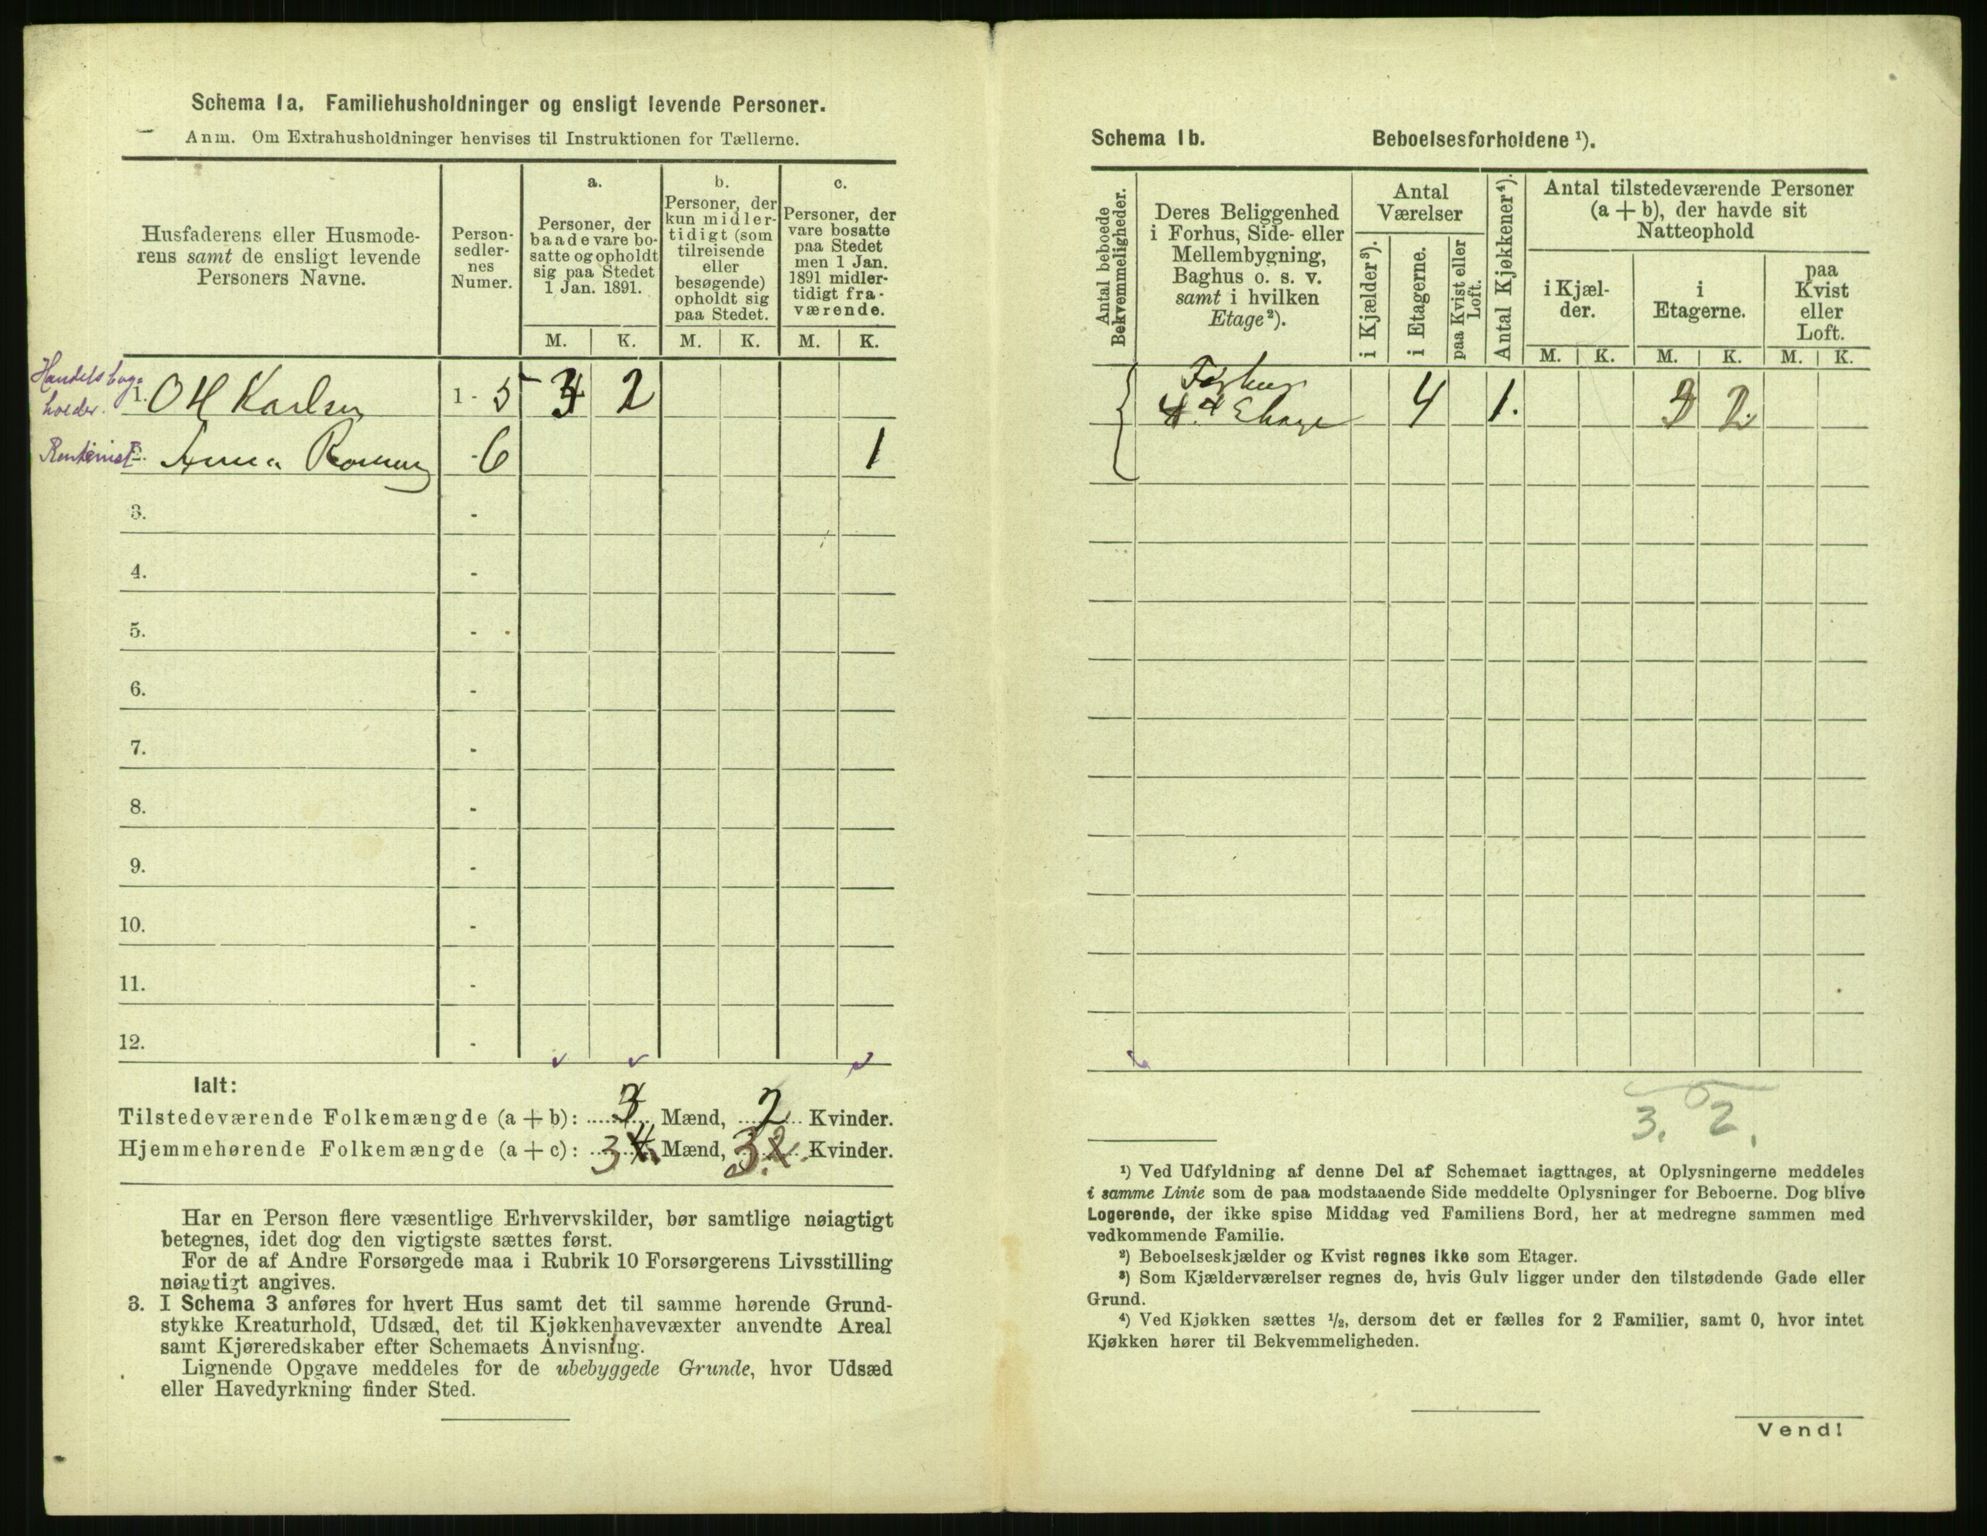 Schema 1a. Familiehusholdninger og ensligt levende Personer.
Anm. Om Extrahusholdninger henvises til Instruktionen for Tællerne.
Husfaderens eller Husmode-
rens samt de ensligt levende
Personers Navne.
Person-
sedler-
nes
Numer.
a.
Personer, der
baade vare bo-
satte og opholdt
sig paa Stedet
1 Jan. 1891.
b.
Personer, der
kun midler-
tidigt (som
tilreisende
eller
besøgende)
opholdt sig
paa Stedet.
c.
Personer, der
vare bosatte
paa Stedet
men 1 Jan.
1891 midler-
tidigt fra-
værende.
M. K. M. K. M. K.
Handelsbog-
holder.
1. O H Karlsen 1 - 5 3 2
Rentenist 2. Anna - 6 1
3. -
4. -
5. -
6. -
7. -
8. -
9. -
10. -
11. -
12. -
Ialt:
Tilstedeværende Folkemængde (a + b): 3 Mænd, 2 Kvinder.
Hjemmehørende Folkemængde (a + c): 3 4 Mænd, 3. 2 Kvinder.
Har en Person flere væsentlige Erhvervskilder, bør samtlige nøiagtigt
betegnes, idet dog den vigtigste sættes først.
For de af Andre Forsørgede maa i Rubrik 10 Forsørgerens Livsstilling
nøiagtigt angives.
3. I Schema 3 anføres for hvert Hus samt det til samme hørende Grund-
stykke Kreaturhold, Udsæd, det til Kjøkkenhavevæxter anvendte Areal
samt Kjøreredskaber efter Schemaets Anvisning.
Lignende Opgave meddeles for de ubebyggede Grunde, hvor Udsæd
eller Havedyrkning finder Sted.
Schema 1b. Beboelsesforholdene ¹).
Antal beboede
Bekvemmeligheder.
Deres Beliggenhed
i Forhus, Side- eller
Mellembygning,
Baghus o. s. v.
samt i hvilken
Etage²).
Antal
Værelser
i Kjælder³).
i Etagerne.
paa Kvist eller
Loft.
Antal Kjøkkener⁴).
Antal tilstedeværende Personer
(a + b), der havde sit
Natteophold
i Kjæl-
der.
i
Etagerne.
paa
Kvist
eller
Loft.
M. K. M. K. M. K.
Forhus
4de Etage 4 1. 3 2
3. 2.
¹) Ved Udfyldning af denne Del af Schemaet iagttages, at Oplysningerne meddeles
i samme Linie som de paa modstaaende Side meddelte Oplysninger for Beboerne. Dog blive
Logerende, der ikke spise Middag ved Familiens Bord, her at medregne sammen med
vedkommende Familie.
²) Beboelseskjælder og Kvist regnes ikke som Etager.
³) Som Kjælderværelser regnes de, hvis Gulv ligger under den tilstødende Gade eller
Grund.
⁴) Ved Kjøkken sættes ½, dersom det er fælles for 2 Familier, samt 0, hvor intet
Kjøkken hører til Bekvemmeligheden.
Vend!